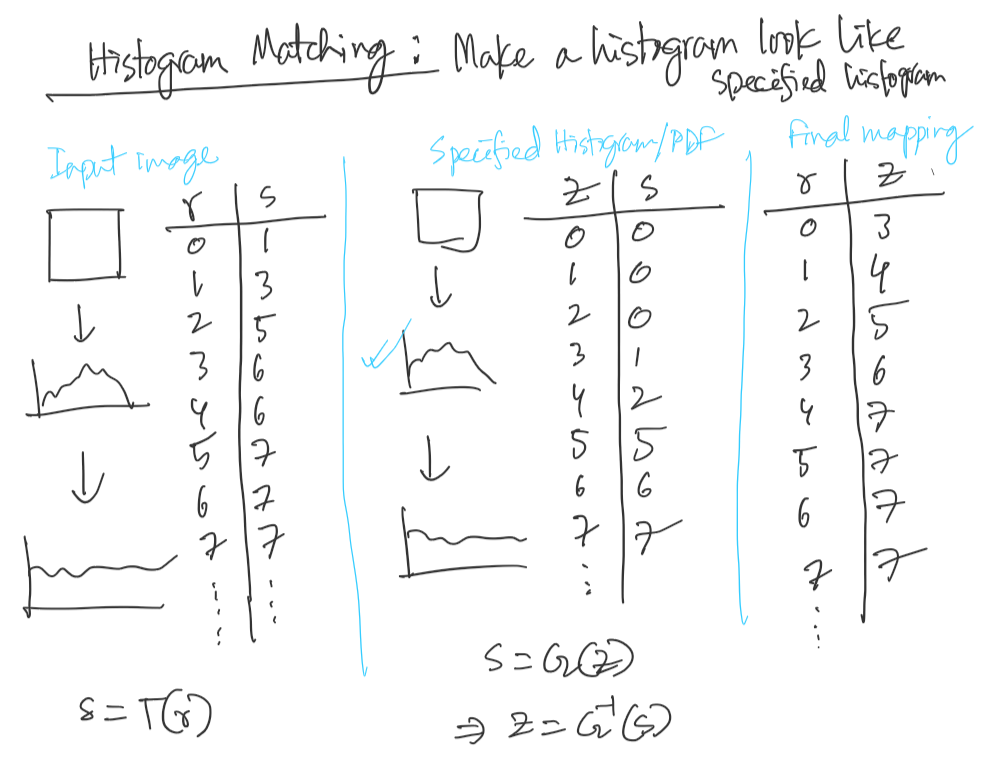 Histogram Matching : Make a histogram look like
specified histogram
Input image
r s
0 1
1 3
2 5
3 6
4 6
5 7
6 7
7 7
⋮ ⋮
s = T(r)
Specified Histogram/PDF
z s
0 0
1 0
2 0
3 1
4 2
5 5
6 6
7 7
⋮
s = G(z)
⇒ z = G⁻¹(s)
Final mapping
r z
0 3
1 4
2 5
3 6
4 7
5 7
6 7
7 7
⋮